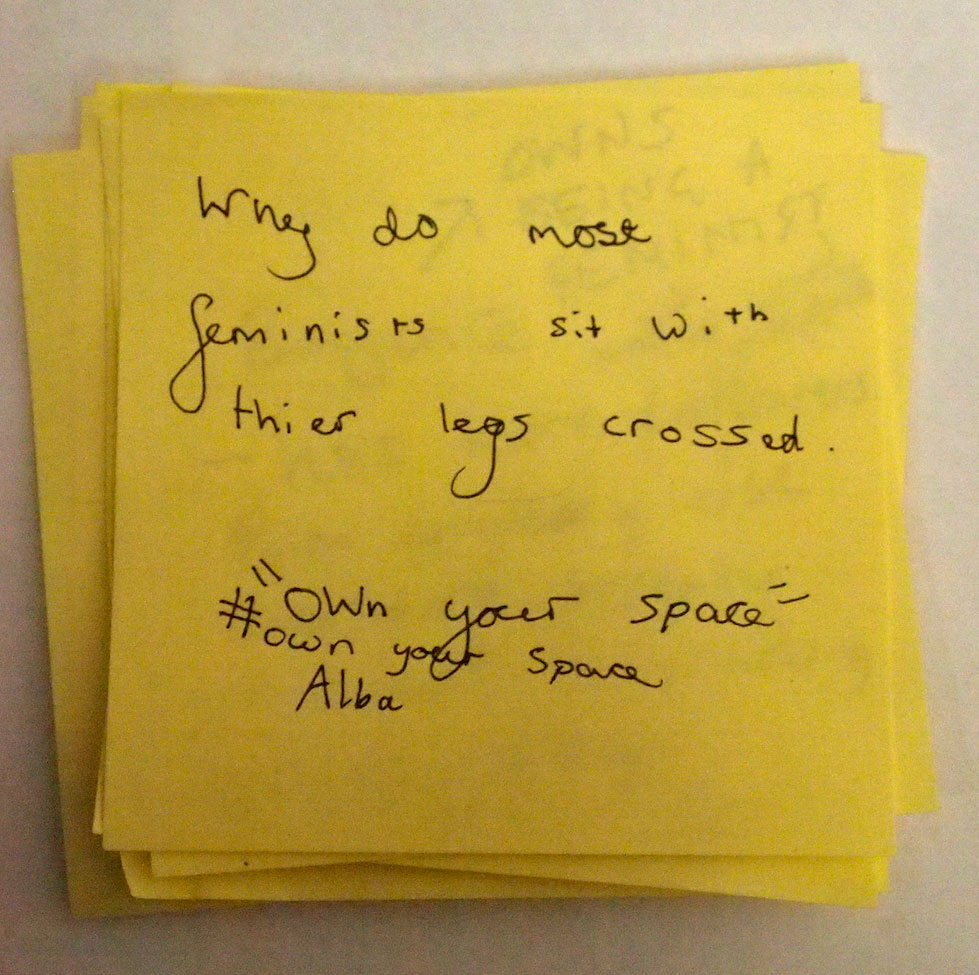 Why do most
feminists sit with
thier legs crossed.
"Own your space"
#own your space
Alba